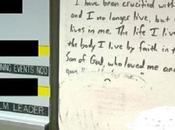 I have been crucified with
and I no longer live, but
lives in me. The life I live
the body I live by faith in th
son of God, who loved me an
NING EVENTS NCO
LM LEADER